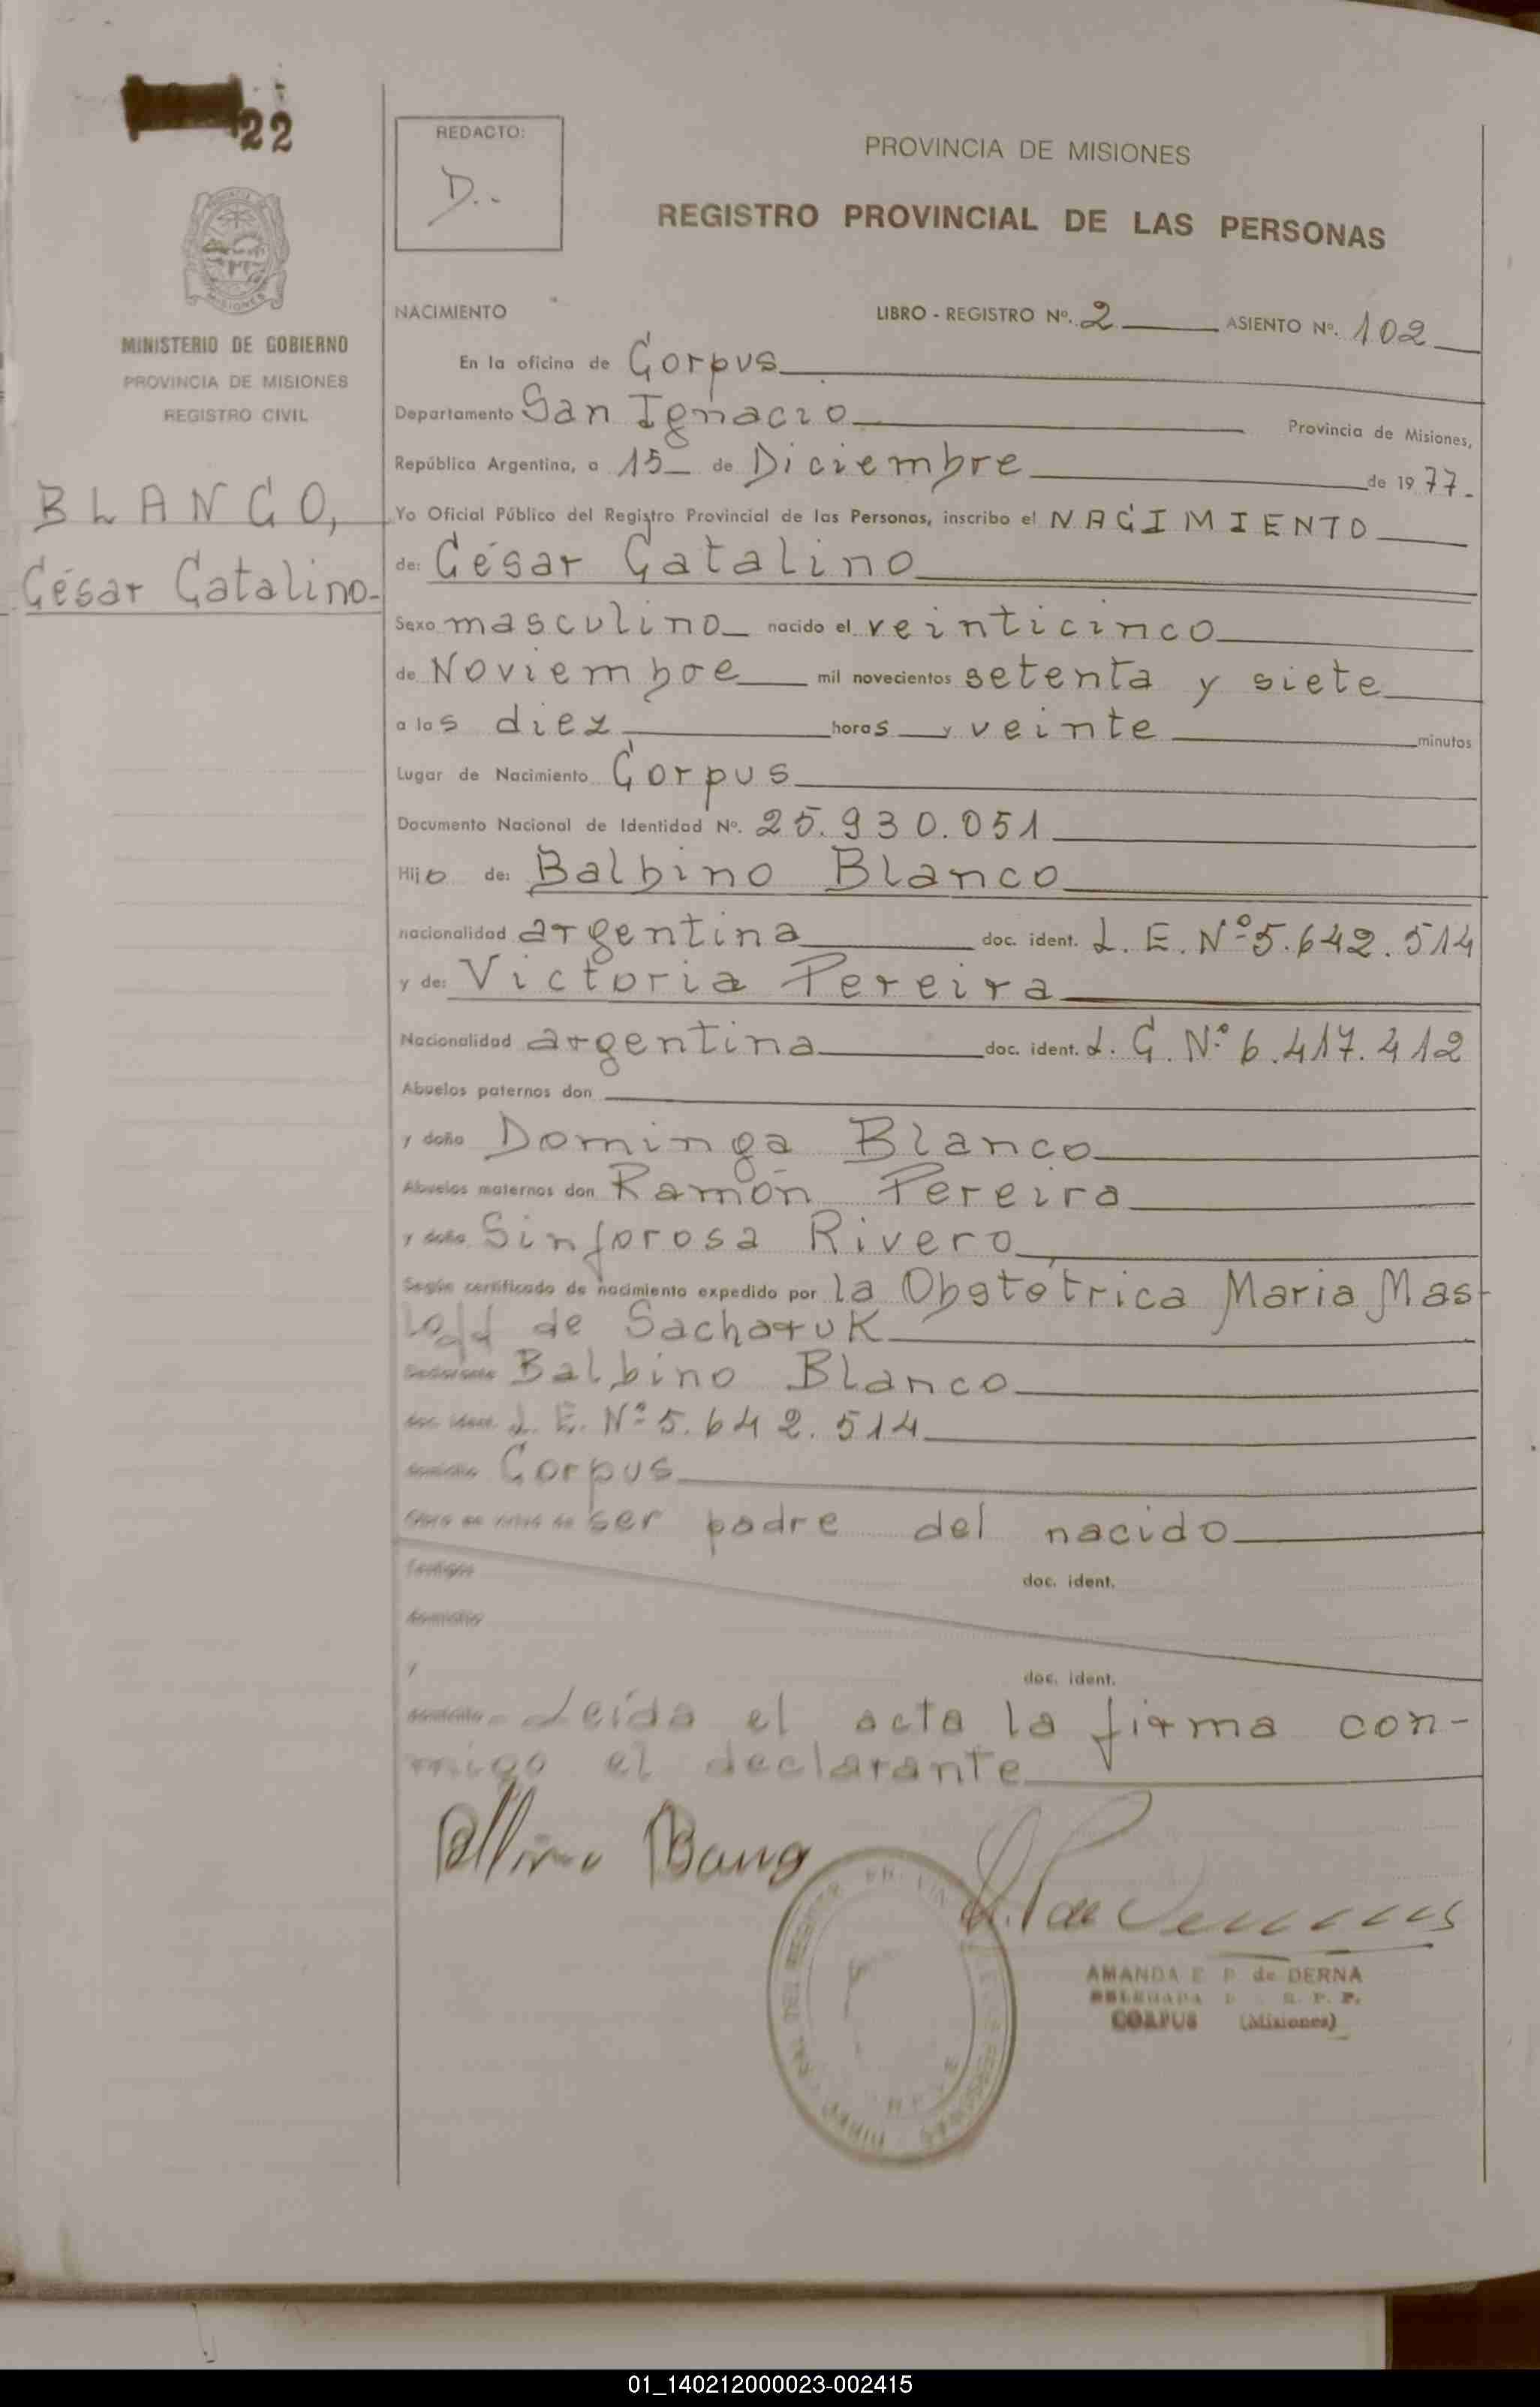 22
REDACTO:
D..
PROVINCIA DE MISIONES
REGISTRO PROVINCIAL DE LAS PERSONAS
MINISTERIO DE GOBIERNO
PROVINCIA DE MISIONES
REGISTRO CIVIL
BLANCO,
César Catalino-
NACIMIENTO
LIBRO - REGISTRO Nº. 2 ASIENTO Nº. 102
En la oficina de Corpus
Departamento San Ignacio Provincia de Misiones,
República Argentina, a 15 de Diciembre de 1977.
Yo Oficial Público del Registro Provincial de las Personas, inscribo el NACIMIENTO
de: César Catalino
Sexo masculino nacido el veinticinco
de Noviembre mil novecientos setenta y siete
a las diez horas y veinte minutos
Lugar de Nacimiento Corpus
Documento Nacional de Identidad Nº. 25.930.051
Hijo de: Balbino Blanco
nacionalidad argentina doc. ident. L. E. Nº 5.642.514
y de: Victoria Pereira
Nacionalidad argentina doc. ident. L. C. Nº 6.417.412
Abuelos paternos don
y doña Dominga Blanco
Abuelos maternos don Ramón Pereira
y doña Sinforosa Rivero
Según certificado de nacimiento expedido por la Obstétrica Maria Mas-
de Sacharuk
Balbino Blanco
L. E. Nº 5.642.514
Corpus
ser padre del nacido
Testigos doc. ident.
domicilio
y doc. ident.
Leída el acta la firma con-
migo el declarante
AMANDA E P de DERNA
DELEGADA R. P. P.
CORPUS (Misiones)
01_140212000023-002415